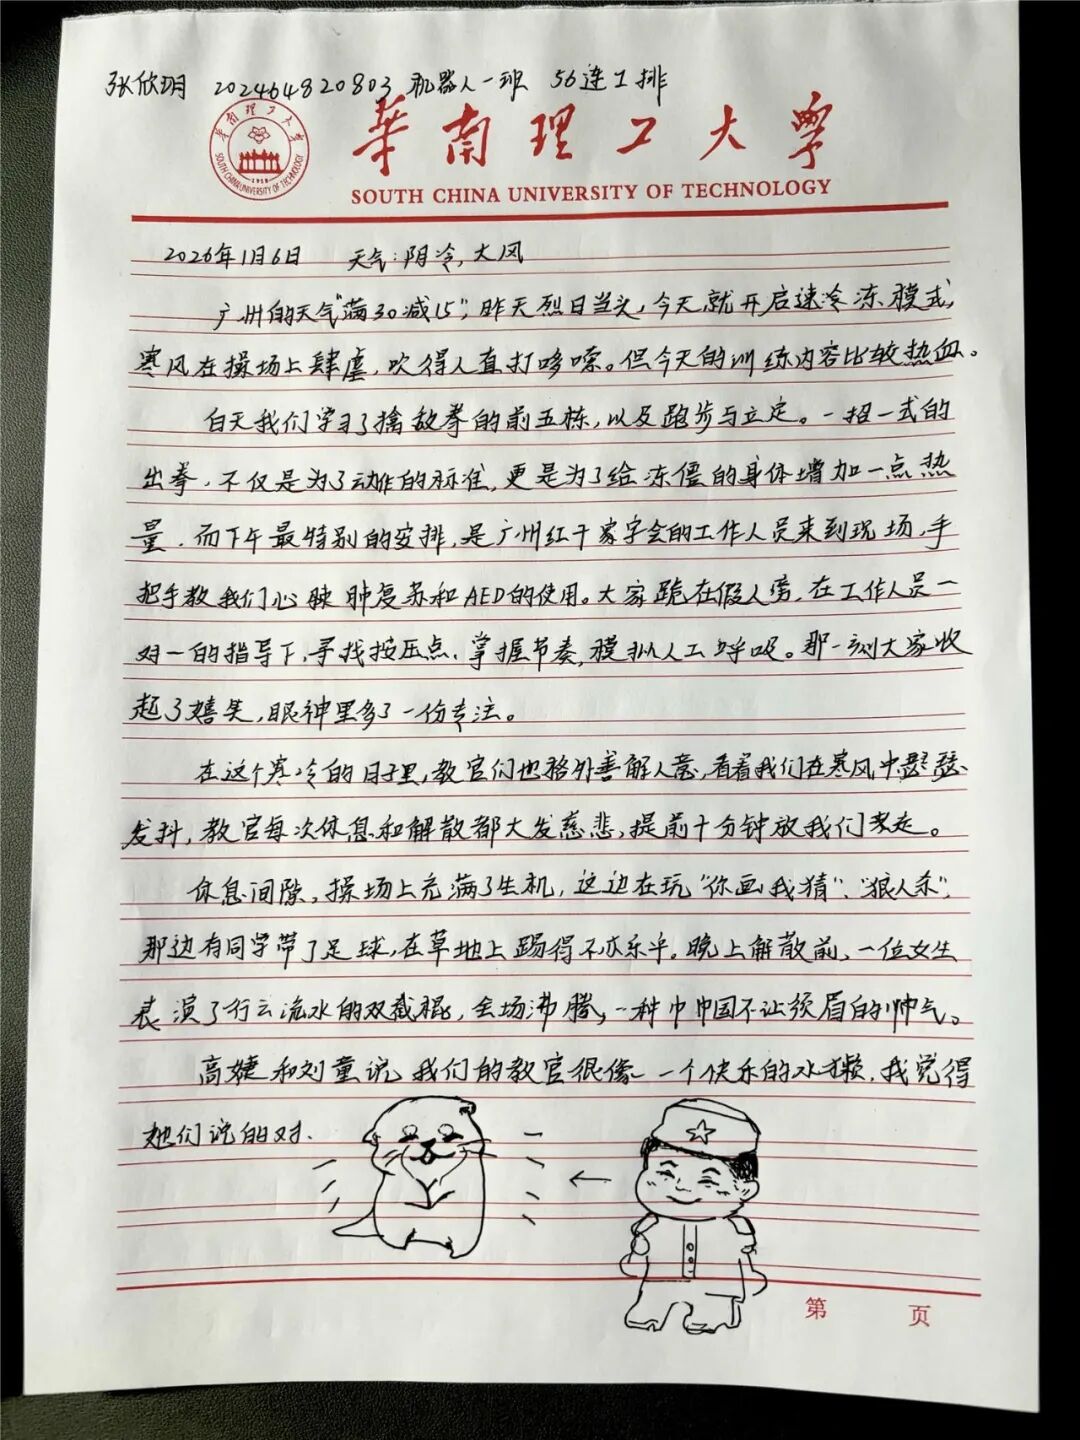 张欣玥 202464820803 机器人一班 56连1排
華南理工大學
SOUTH CHINA UNIVERSITY OF TECHNOLOGY
華南理工大學
SOUTH CHINA UNIVERSITY OF TECHNOLOGY
1918
2026年1月6日 天气:阴冷,大风
广州的天气"满30减15",昨天烈日当头,今天就开启速冷冻模式,
寒风在操场上肆虐,吹得人直打哆嗦。但今天的训练内容比较热血。
白天我们学习了擒敌拳的前五栋,以及跑步与立定。一招一式的
出拳,不仅是为了动作的标准,更是为了给冻僵的身体增加一点热
量.而下午最特别的安排,是广州红十字会的工作人员来到现场,手
把手教我们心肺复苏和AED的使用。大家跪在假人旁,在工作人员一
对一的指导下,寻找按压点、掌握节奏,模拟人工呼吸。那一刻大家收
起了嬉笑,眼神里多了一份专注。
在这个寒冷的日子里,教官们也格外善解人意,看着我们在寒风中瑟瑟
发抖,教官每次休息和解散都大发慈悲,提前十分钟放我们走。
休息间隙,操场上充满了生机,这边在玩"你画我猜"、"狼人杀",
那边有同学带了足球,在草地上踢得不亦乐乎。晚上解散前,一位女生
表演了行云流水的双截棍,全场沸腾,一种巾帼不让须眉的帅气。
高婕和刘童说,我们的教官很像一个快乐的水獭,我觉得
她们说的对.
第 页